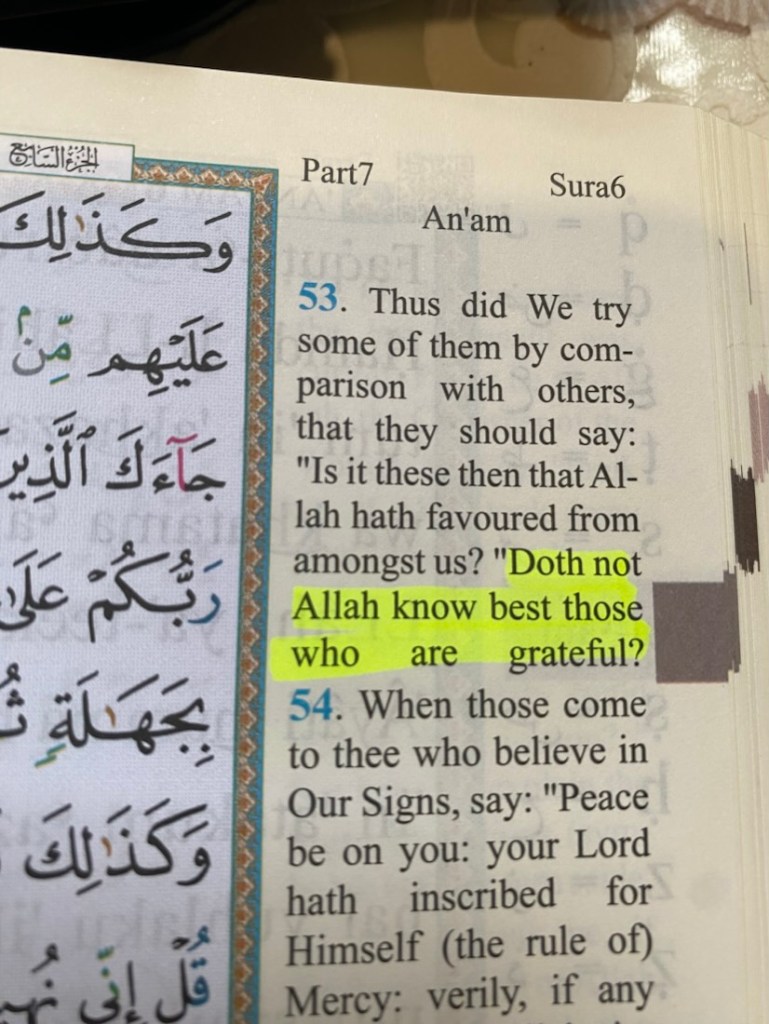 الجزء السابع
وَكَذَٰلِكَ
عَلَيْهِم مِّنۢ
جَآءَكَ ٱلَّذِينَ
رَبُّكُمْ عَلَىٰ
بِجَهَٰلَةٍ
وَكَذَٰلِكَ
قُلْ إِنِّي
Part7
Sura6
An'am
53. Thus did We try
some of them by com-
parison with others,
that they should say:
"Is it these then that Al-
lah hath favoured from
amongst us? "Doth not
Allah know best those
who are grateful?
54. When those come
to thee who believe in
Our Signs, say: "Peace
be on you: your Lord
hath inscribed for
Himself (the rule of)
Mercy: verily, if any